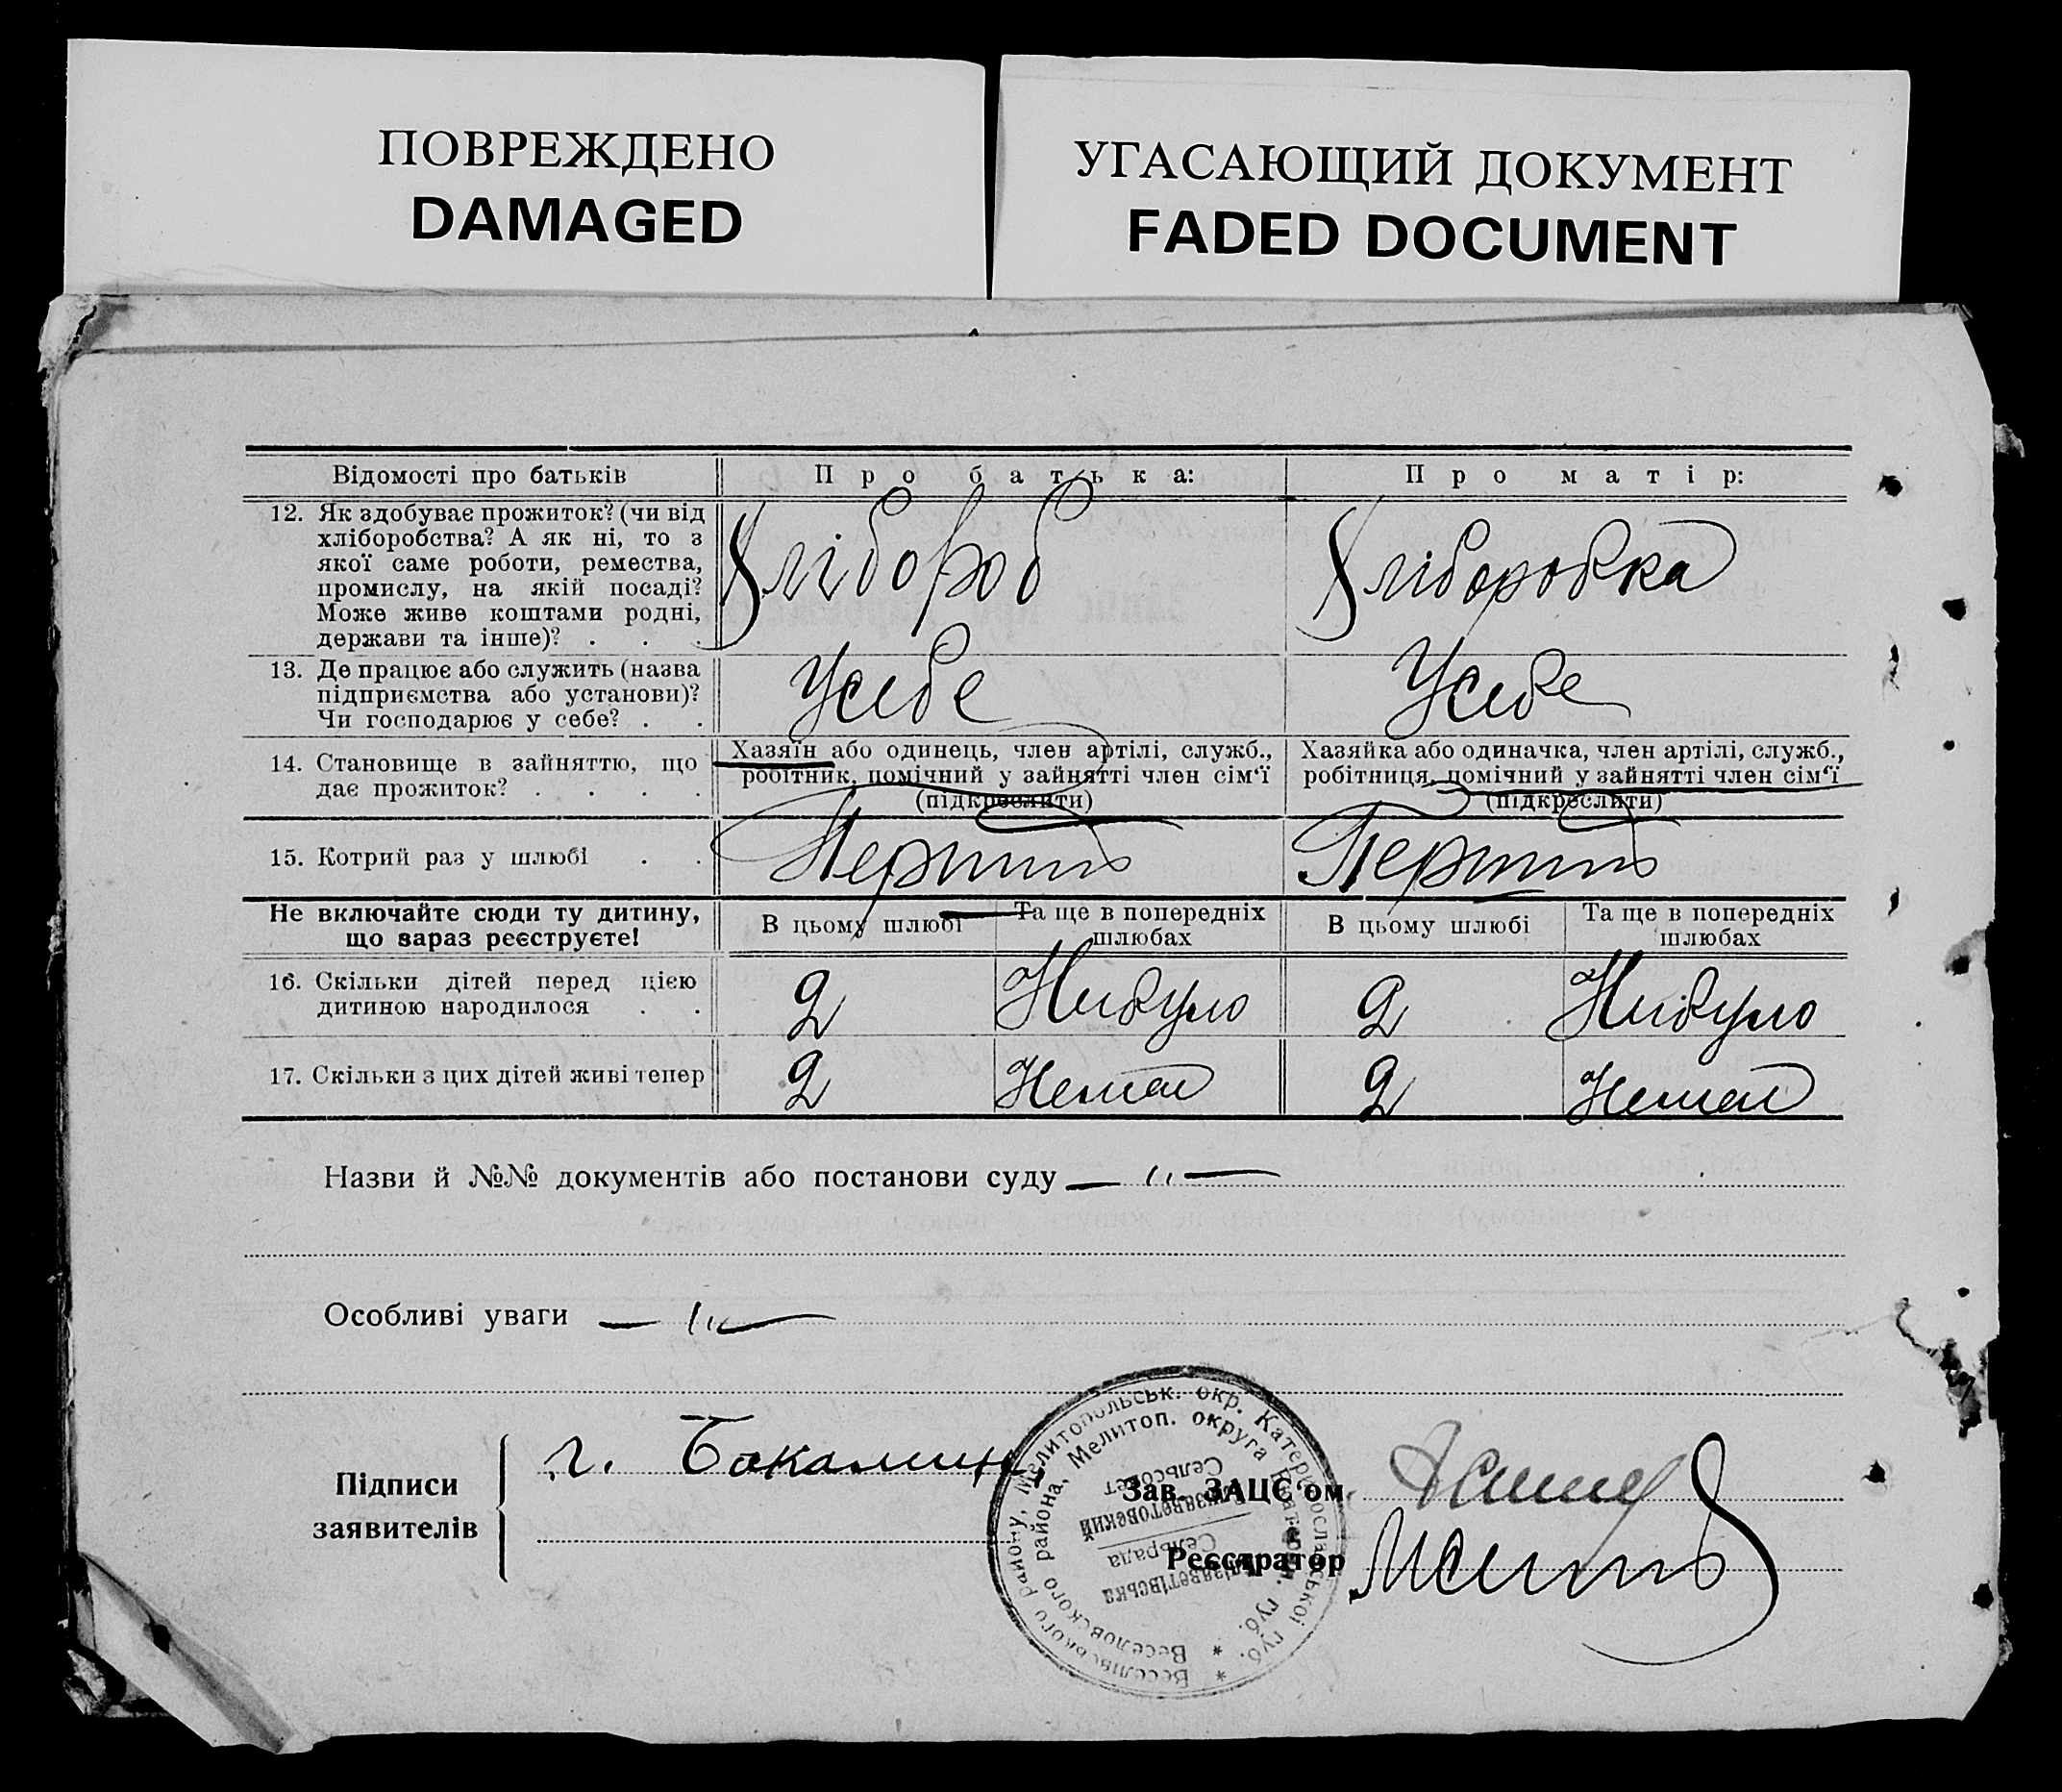 ПОВРЕЖДЕНО
DAMAGED
УГАСАЮЩИЙ ДОКУМЕНТ
FADED DOCUMENT
Відомості про батьків
Про батька:
Про матір:
12. Як здобуває прожиток? (чи від
хліборобства? А як ні, то з
якої саме роботи, ремества,
промислу, на якій посаді?
Може живе коштами родні,
держави та інше)? . . .
Хлібороб
Хліборобка
13. Де працює або служить (назва
підприємства або установи)?
Чи господарює у себе? . .
У себе
У себе
14. Становище в зайняттю, що
дає прожиток? . . . .
Хазяїн або одинець, член артілі, служб.,
робітник, помічний у зайнятті член сім‘ї
(підкреслити)
Хазяйка або одиначка, член артілі, служб.,
робітниця, помічний у зайнятті член сім‘ї
(підкреслити)
15. Котрий раз у шлюбі . .
Не включайте сюди ту дитину,
що зараз реєструєте!
В цьому шлюбі
Та ще в попередніх
шлюбах
В цьому шлюбі
Та ще в попередніх
шлюбах
16. Скільки дітей перед цією
дитиною народилося . .
2
Небуло
2
Небуло
17. Скільки з цих дітей живі тепер
2
Немає
2
Немає
Назви й №№ документів або постанови суду — " —
Особливі уваги — " —
Підписи
заявителів
г. Бакалин
Зав. ЗАЦС‘ом
Реєстратор
Веселівського району, Мелитопольськ. окр. Катеринославської губ. *
Веселовского района, Мелитоп. округа Екатерин. губ. *
Єлізаветівська
Сельрада
Елизаветовский
Сельсовет